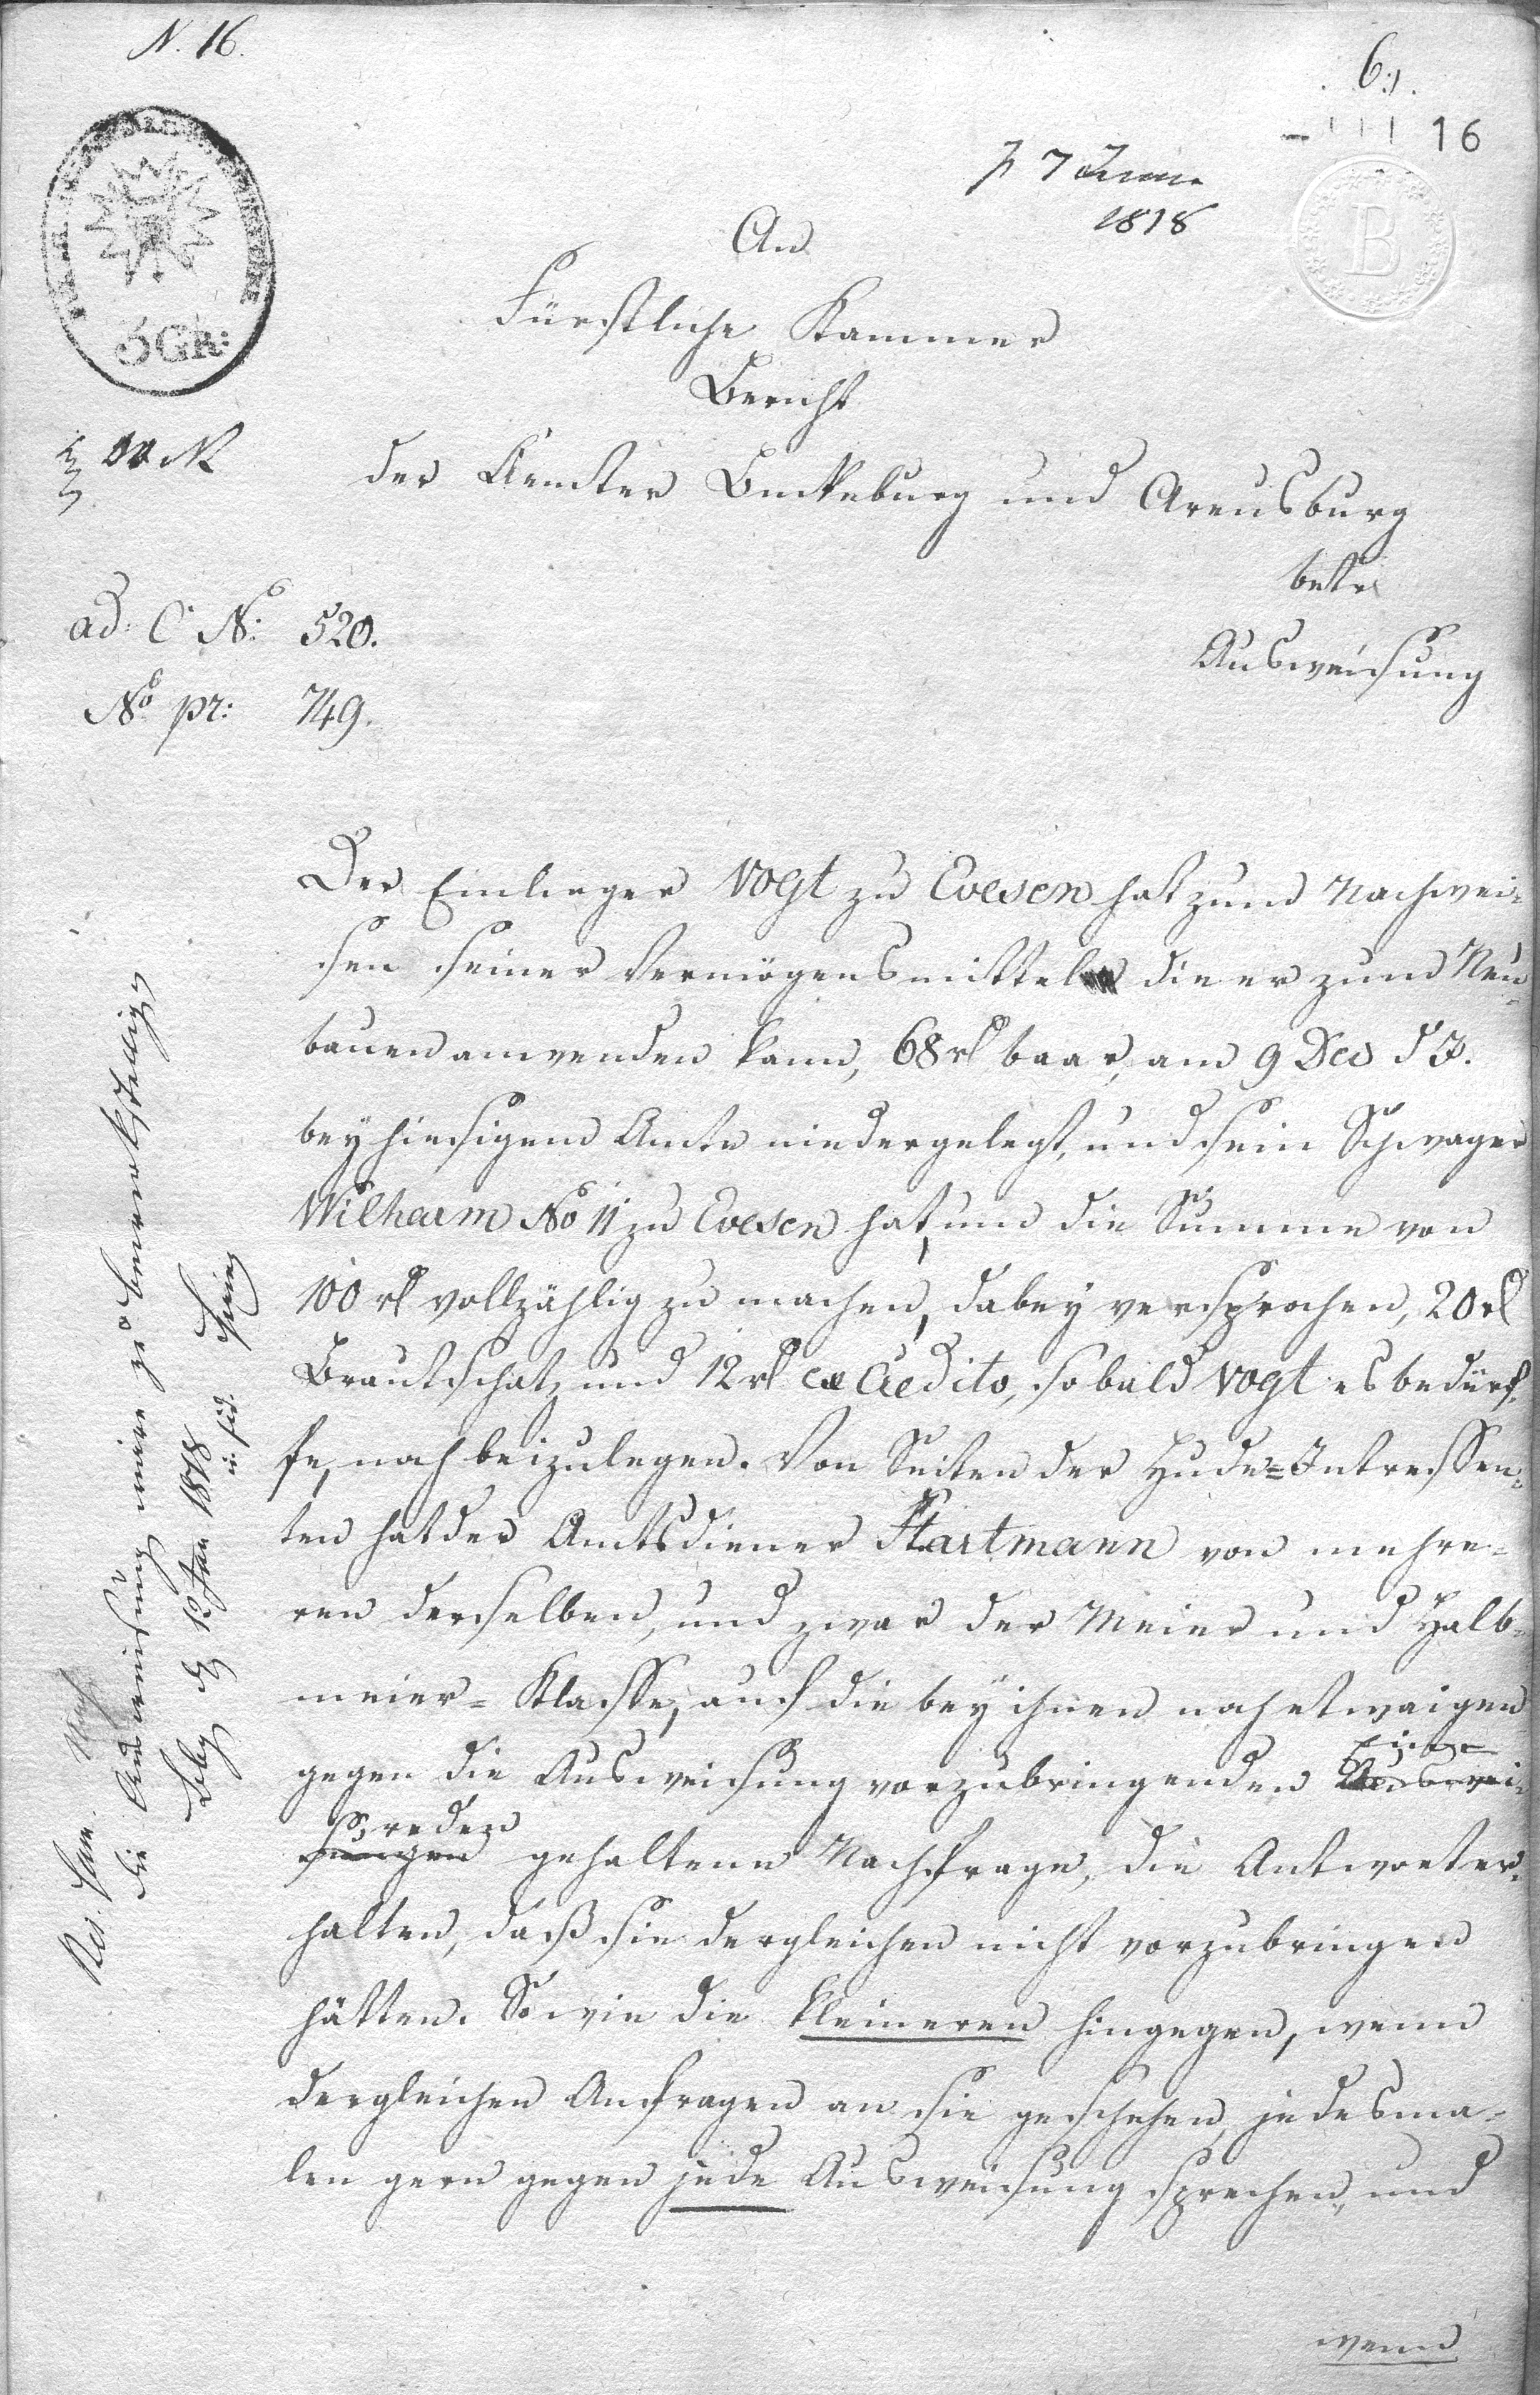 N. 16.
6.
16
B
3 GR:
p 7 Januar
1818
An
Fürstliche Kammer
Bericht
der Aemter Buckeburg und Arensburg
betr
Ausweisung
ad: C No: 520.
No pr: 749.
Der Einlieger Vogt zu Evesen hat zum Nachwei-
sen seiner Vermögensmittel die er zum Neu-
bauen anwenden kann, 68 rl baar, am 9 Dec d J.
bey hiesigem Amte niedergelegt, und sein Schwager
Wilharm No 11 zu Evesen hat, um die Summe von
100 rl vollzählig zu machen, dabey versprochen, 20 rl
Brautschatz und 12 rl ex Credito, sobald Vogt es bedürf-
fe, noch beizulegen. Von Seiten der Hude-Intressen-
ten hat der Amtsdiener Hartmann von mehre-
ren derselben, und zwar der Meier und Halb-
meier-Klasse, auf die bey ihnen noch etwaigen
gegen die Ausweisung vorzubringenden Auswei- Einge
sungen reden gehaltene Nachfrage, die Antwort er-
halten, daß sie dergleichen nicht vorzubringen
hätten. So wie die kleineren hingegen, wenn
dergleichen Anfragen an sie geschehen, jedesma-
len gern gegen jede Ausweisung sprechen, und
wenn
Res. Cam.
die Anweisung zu bewerkstelligen
Bbg d 12 Jan 1818